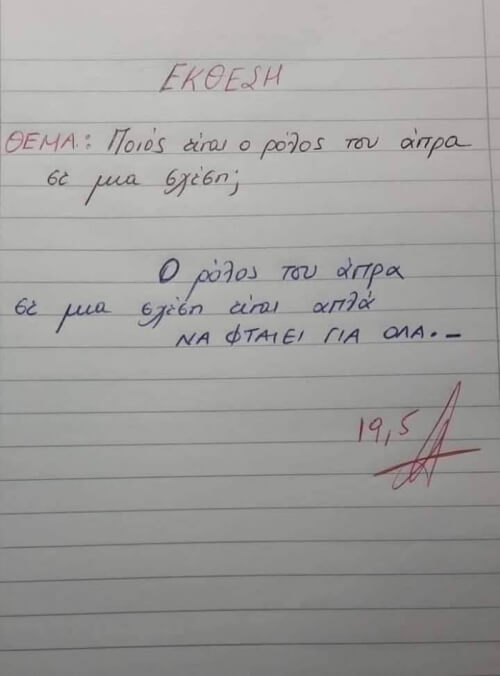 ΕΚΘΕΣΗ
ΘΕΜΑ: Ποιός είναι ο ρόλος του άπρα
σε μια σχέση;
Ο ρόλος του άπρα
σε μια σχέση είναι απλά
ΝΑ ΦΤΑΙΕΙ ΓΙΑ ΟΛΑ.-
19,5